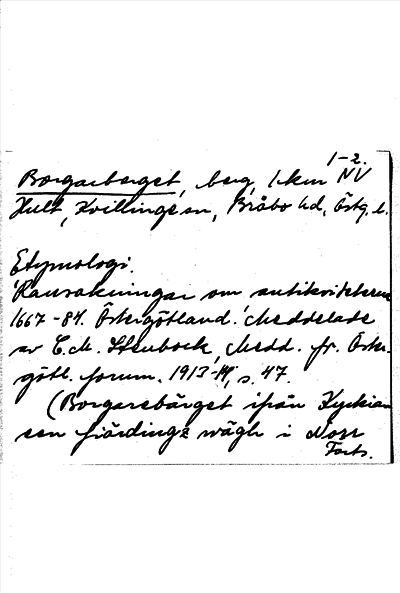 1-2.
Borgareberget, berg, 1 km NV
Hult, Kvillinge sn, Bråbo hd, Östg. l.
Etymologi.
'Ransakningar om antikviteterna
1667-84. Östergötland.' Meddelade
av C.M. Stenbock, Medd. fr. Öster-
götl. fornm. 1913-14, s. 47.
(Borgarebärget ifrån Kyrkian
een fiärdingz wägh i Norr
Forts.